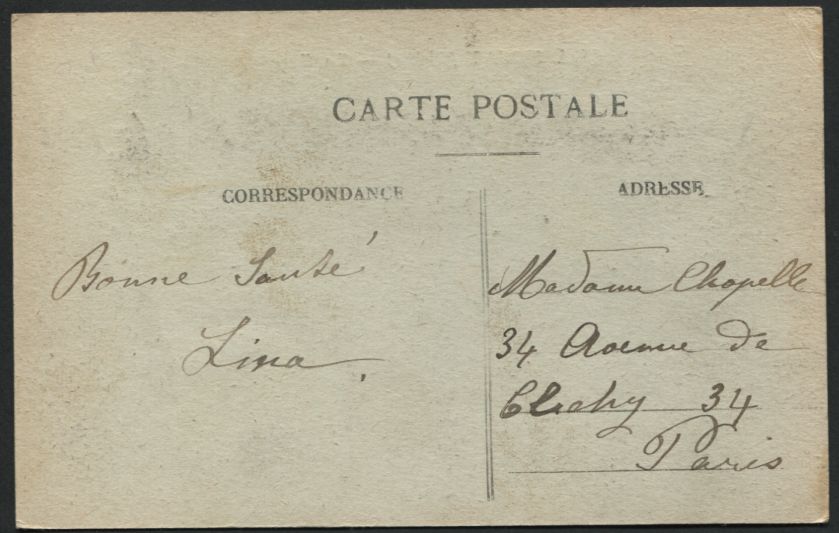 CARTE POSTALE
CORRESPONDANCE
ADRESSE
Bonne Santé
Lina.
Madame Chapelle
34 Avenue de
Clichy 34
Paris